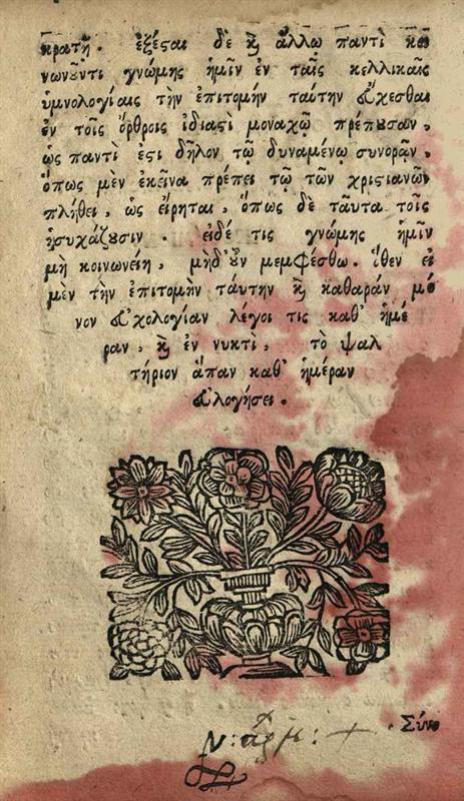 κρατῇ. ἐξέςαι δὲ κ̀ ἄλλῳ παντὶ κοι
νωνοῦντι γνώμης ἡμῖν ἐν ταῖς κελλικαῖς
ὑμνολογίαις τὴν ἐπιτομήν ταύτην εὔχεσθαι
ἐν τοῖς ὄρθροις ἰδίᾳ μοναχῷ πρέπουσαν,
ὡς παντὶ ἐςι δῆλον τῷ δυναμένῳ συνορᾷν,
ὅπως μὲν ἐκεῖνα πρέπει τῷ τῶν χριςιανῶν
πλήθει, ὡς εἴρηται, ὅπως δὲ ταῦτα τοῖς
ἡσυχάζουσιν. εἰδέ τις γνώμης ἡμῖν
μὴ κοινωνείη, μηδ' οὖν μεμφέσθω. ὅθεν εἰ
μὲν τὴν ἐπιτομὴν ταύτην κ̀ καθαράν μό
νον εὐχολογίαν λέγοι τις καθ' ἡμέ
ραν, κ̀ ἐν νυκτὶ, τὸ ψαλ
τήριον ἅπαν καθ' ἡμέραν
εὐλογήσει.
Σύνο